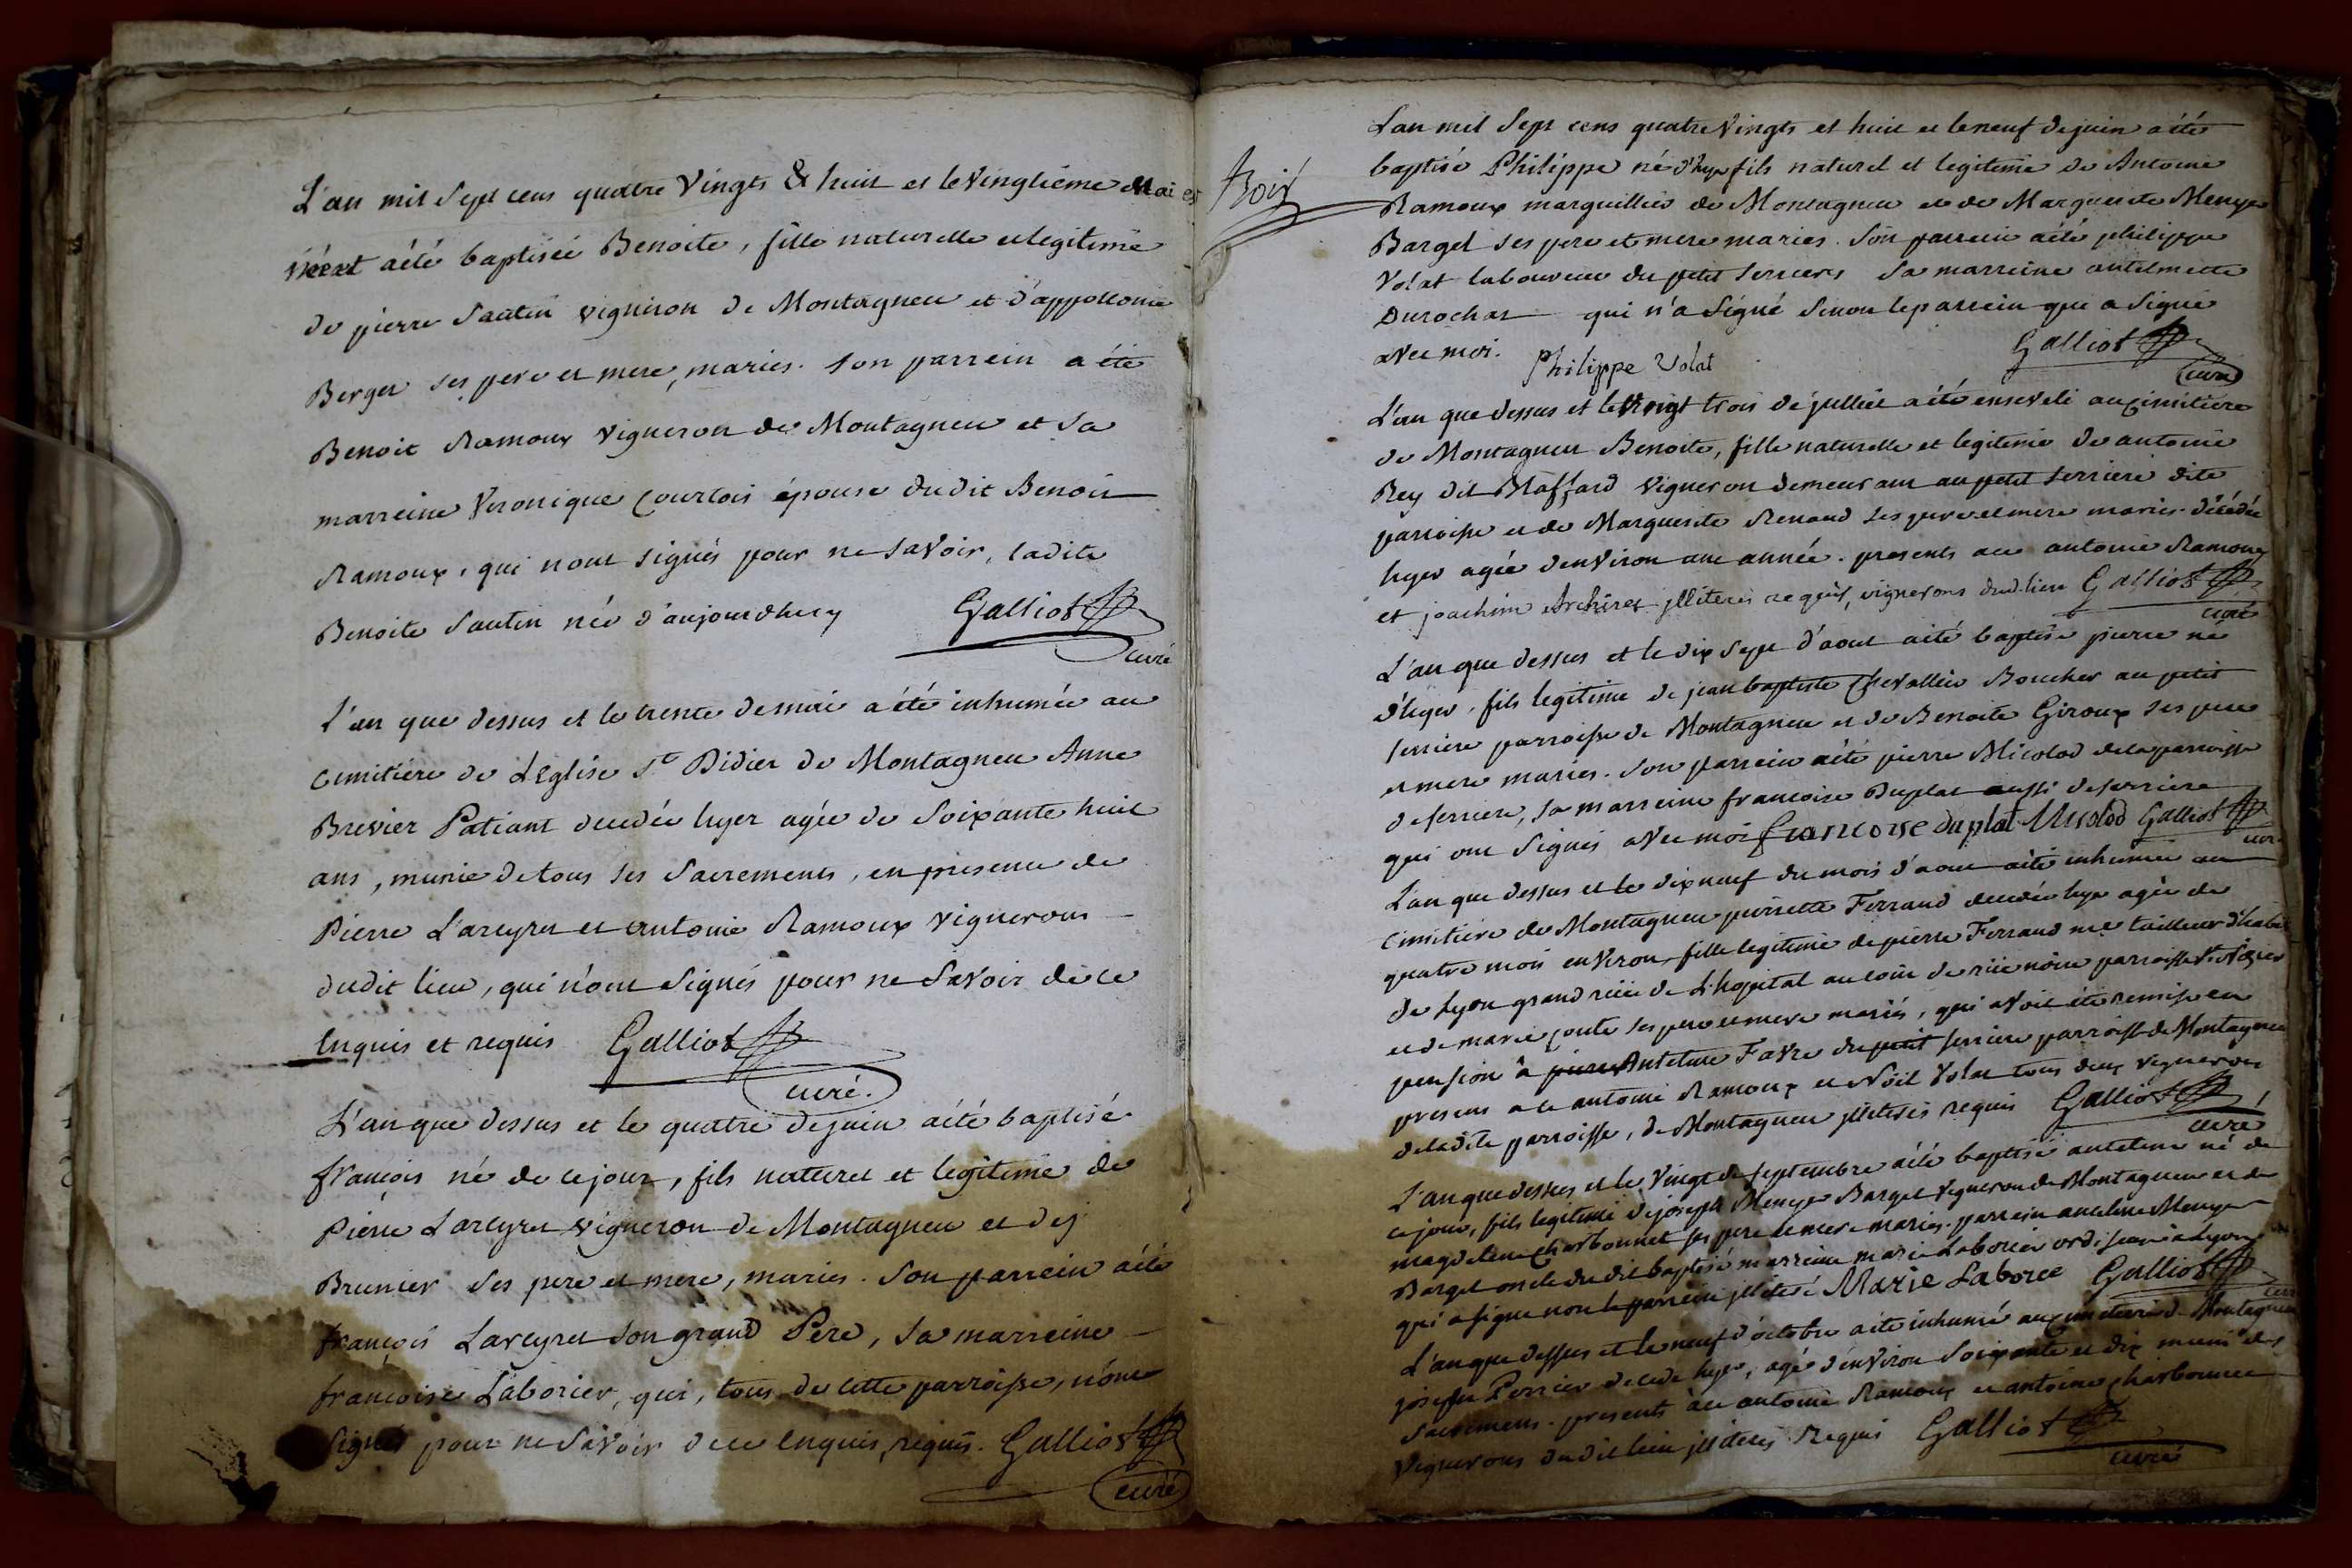 L'an mil sept cens quatre vingts & huit et le vingtiéme Mai
a été baptiseé Benoite, fille naturelle et legitime
de pierre Santin vigneron de Montagneu et d'appollonie
Berger ses pere et mere, maries. son parrein a été
Benoit Ramoux vigneron de Montagneu et sa
marreine Veronique Courtois épouse dudit Benoit
Ramoux, qui n'ont signés pour ne savoir, ladite
Benoite Santin née d'aujourdhuy Galliot
curé
L'an que dessus et le trente de mai a été inhumée au
cimitiére de L'Eglise St Didier de Montagneu Anne
Brevier Patiant decedée hyer agée de soixante huit
ans, munie de tous ses sacrements, en presence de
Pierre Larcyret et antoine Ramoux vignerons
dudit lieu, qui n'ont signés pour ne savoir de ce
enquis et requis Galliot
curé.
L'an que dessus et le quatre de juin a été baptisé
françois né de ce jour, fils naturel et legitime de
Pierre Larcyret vigneron de Montagneu et de
Brunier ses pere et mere, maries. Son parrein a été
françois Larcyret son grand Pere, sa marreine
françoise Laborier, qui, tous de cette parroisse, n'ont
signés pour ne savoir de ce enquis, requis. Galliot
curé
L'an mil sept cens quatre vingts et huit et le neuf de juin a été
baptisé Philippe né d'hyer fils naturel et legitime de Antoine
Ramoux marguillier de Montagneu et de Marguerite Menye
Bargel ses pere et mere maries. Son parrein a été philippe
Volat laboureur du petit serrieres sa marreine antelmette
Durochat qui n'a signé sinon le parrein qui a signé
avec moi. Philippe Volat Galliot
curé
L'an que dessus et le vingt trois de juillet a été enseveli au cimitiere
de Montagneu Benoite, fille naturelle et legitime de antoine
Rey dit Maffard vigneron demeurant au petit serriere dite
parroisse et de Marguerite Renaud ses pere et mere maries. décédée
hyer agée d'environ une année. presents ace antoine Ramoux
et joachim illiterés requis, vignerons dud. lieu Galliot
curé
L'an que dessus et le dix sept d'aout a été baptisé pierre né
d'hyer, fils legitime de jean baptiste Chevallier Boucher au petit
serriere parroisse de Montagneu et de Benoite Giroux ses pere
et mere maries. Son parrein a été pierre Micolod de la parroisse
de serriere, sa marreine francoise Duplat aussi de serriere
qui ont signés avec moi francoise duplat Micolod Galliot
curé
L'an que dessus et le dix neuf du mois d'aout a été inhumée au
cimitiere de Montagneu pierrette Ferrand decedée hyer agée de
quatre mois environ, fille legitime de pierre Ferrand me tailleur d'habit
de Lyon grand rüe de L'hopital au coin de rüe noire parroisse St Nizier
et de marie ses pere et mere mariés, qui avoit été remise en
pension à Antelme Favre du petit serriere parroisse de Montagneu
presens ace antoine Ramoux et Noël Volat tous deux vignerons
de ladite parroisse, de Montagneu illiterés requis Galliot
curé
L'an que dessus et le vingt de septembre a été baptisé antelme né de
ce jour, fils legitime de joseph Menye Bargel vigneron de Montagneu et de
magdelene Charbonnet ses pere et mere maries. parrein antelme Menye
Bargel oncle du dit baptisé marreine marie Laborier à Lyon
qui a signé non le parrein illiteré Marie Laborce Galliot
curé
L'an que dessus et le neuf d'octobre a été inhumé au cimitiere de Montagneu
joseph Perrier decede hyer, agé d'environ soixante et dix muni des
sacremens. presents ace antoine Ramoux et antoine charbonnet
vignerons dudit lieu illiterés requis Galliot
curé